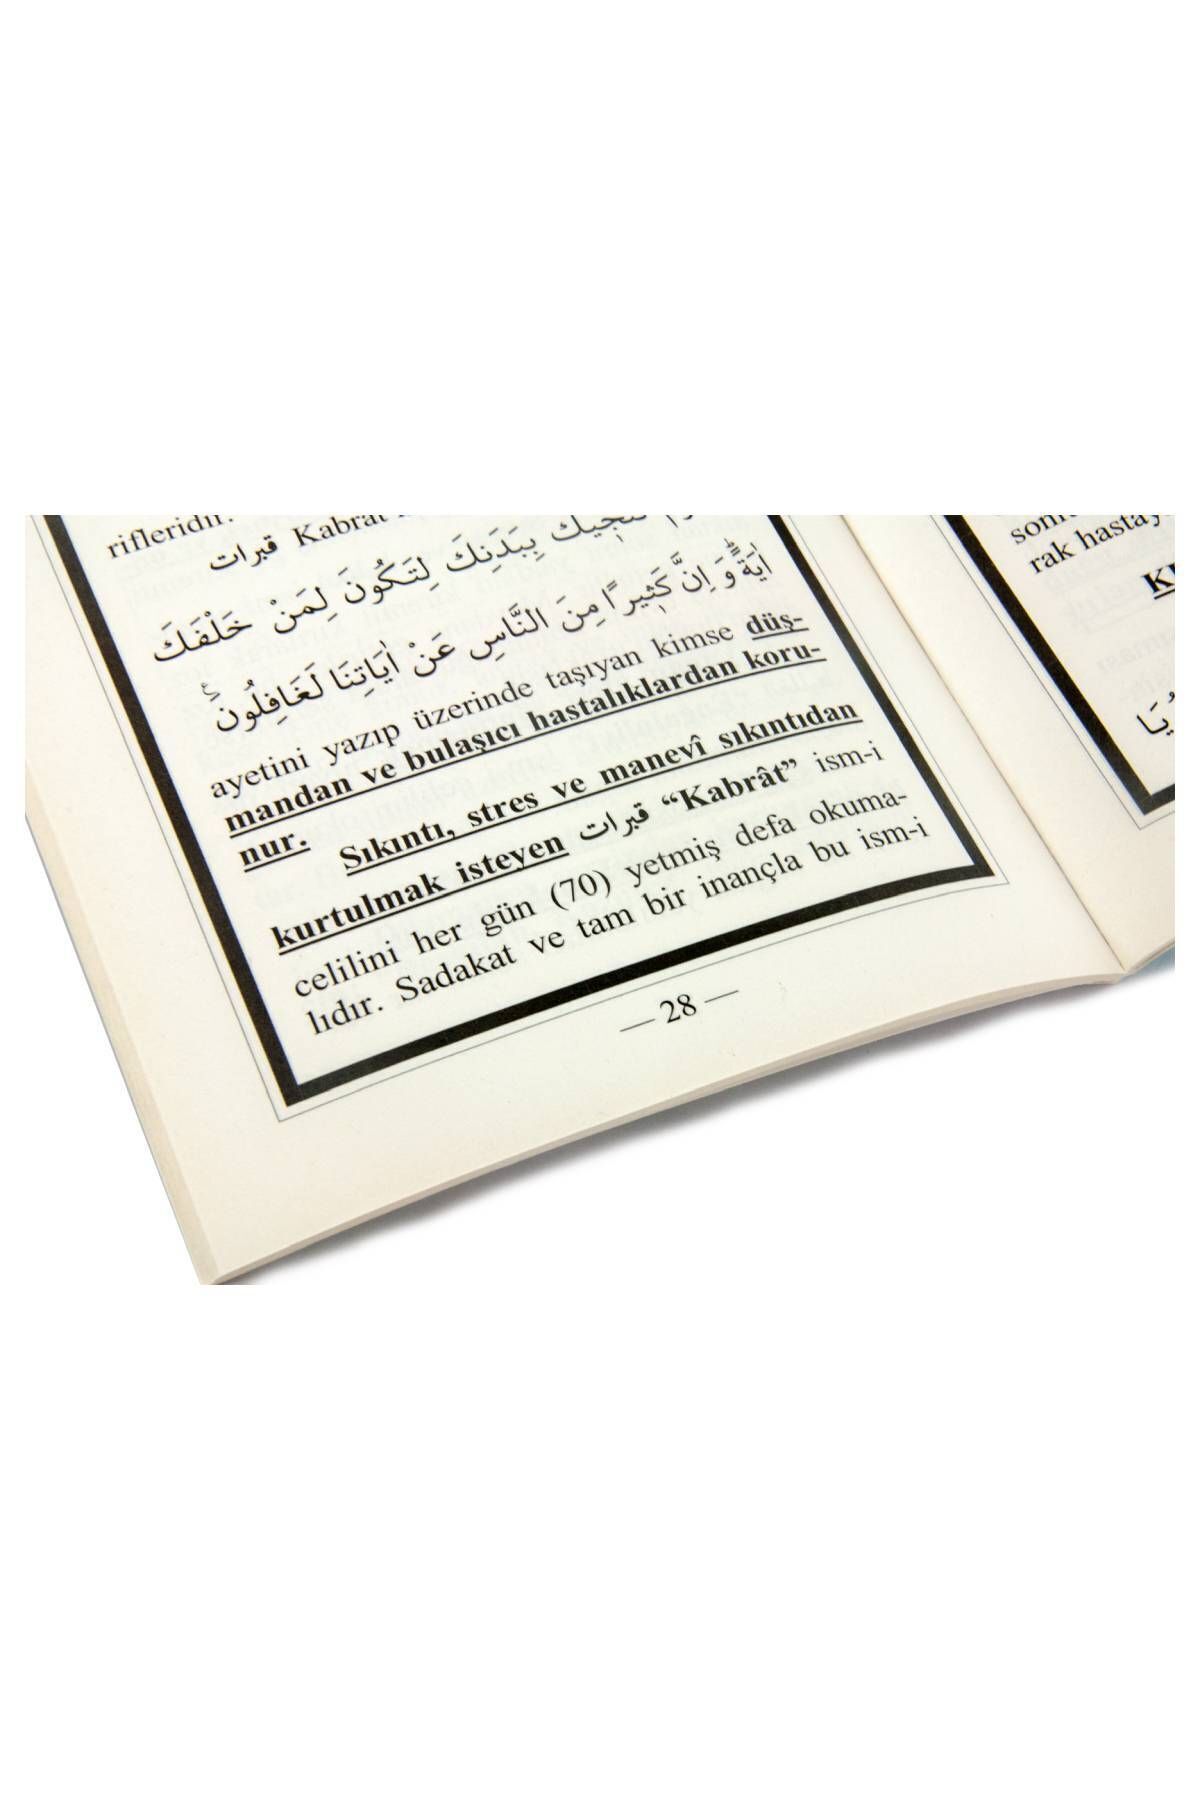 rifleridir.
قبرات Kabrat
نُنَجِّيكَ بِبَدَنِكَ لِتَكُونَ لِمَنْ خَلْفَكَ
اٰيَةًۜ وَاِنَّ كَث۪يرًا مِنَ النَّاسِ عَنْ اٰيَاتِنَا لَغَافِلُونَ۟
ayetini yazıp üzerinde taşıyan kimse düş-
mandan ve bulaşıcı hastalıklardan koru-
nur.
Sıkıntı, stres ve manevî sıkıntıdan
kurtulmak isteyen قبرات “Kabrât” ism-i
celilini her gün (70) yetmiş defa okuma-
lıdır. Sadakat ve tam bir inançla bu ism-i
— 28 —
rak hastay